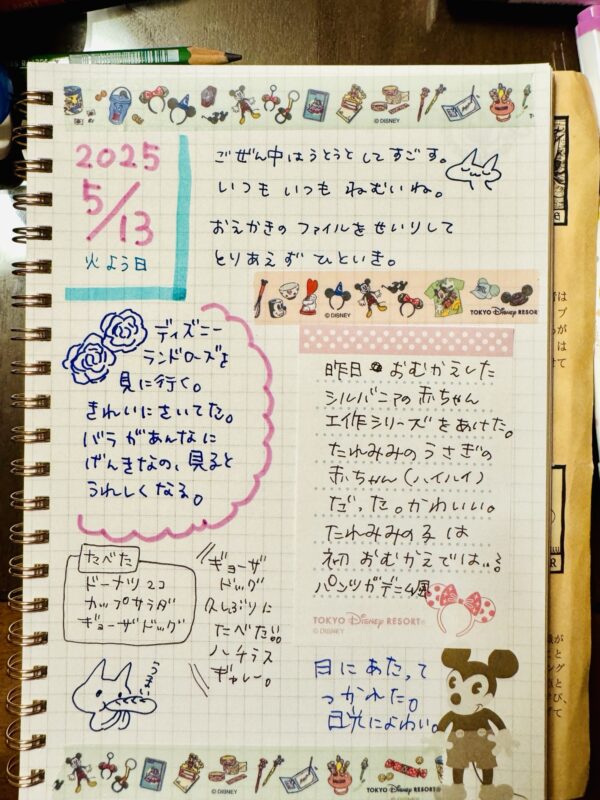 © DISNEY
2025
5/13
火よう日
ごぜん中はうとうとしてすごす。
いつも いつも ねむいね。
おえかきの ファイルをせいりして
とりあえず ひといき。
© DISNEY
TOKYO Disney RESOR
ディズニー
ランドローズを
見に行く。
きれいにさいてた。
バラがあんなに
げんきなの、見ると
うれしくなる。
昨日 おむかえした
シルバニアの赤ちゃん
工作シリーズをあけた。
たれみみのうさぎの
赤ちゃん(ハイハイ)
だった。かわいい。
たれみみの子は
初 おむかえでは…?
パンツがデニム風
TOKYO Disney RESORT®
© DISNEY
たべた
ドーナツ2コ
カップサラダ
ギョーザドッグ
ギョーザ
ドッグ
久しぶりに
たべた!!
うまい
日にあたって
つかれた。
日光によわい。
© DISNEY
TOKYO Disney